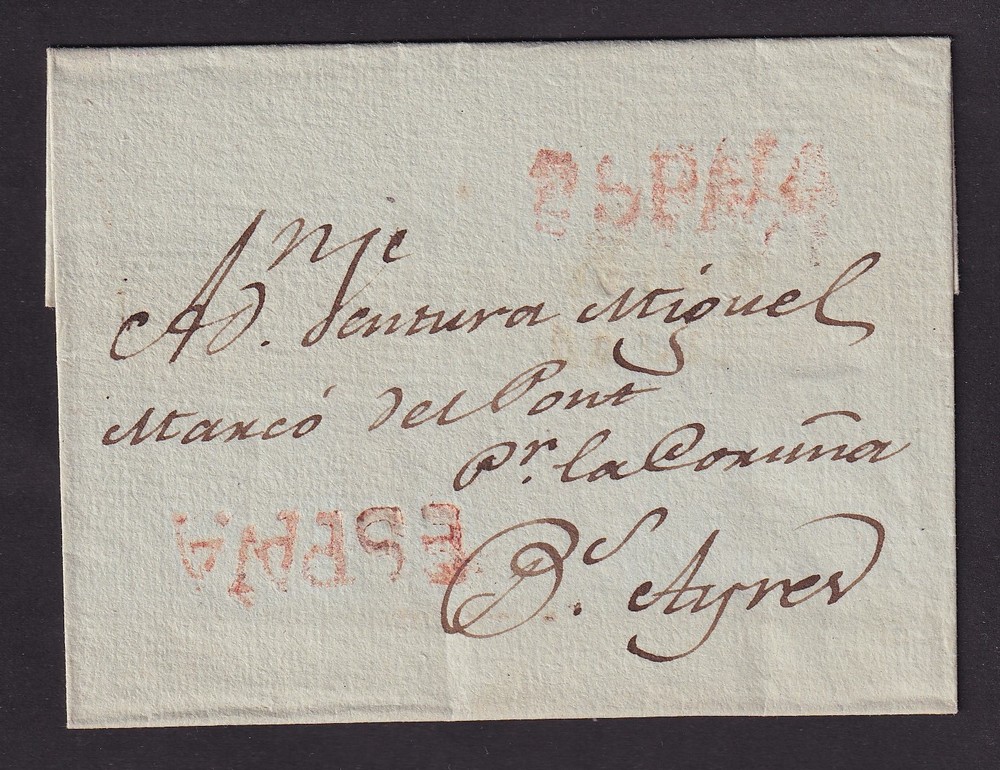 ESPAÑA
A D. Ventura Miguel
Marcó del Pont
Pr. la Coruña
ESPAÑA
Bs. Ayres